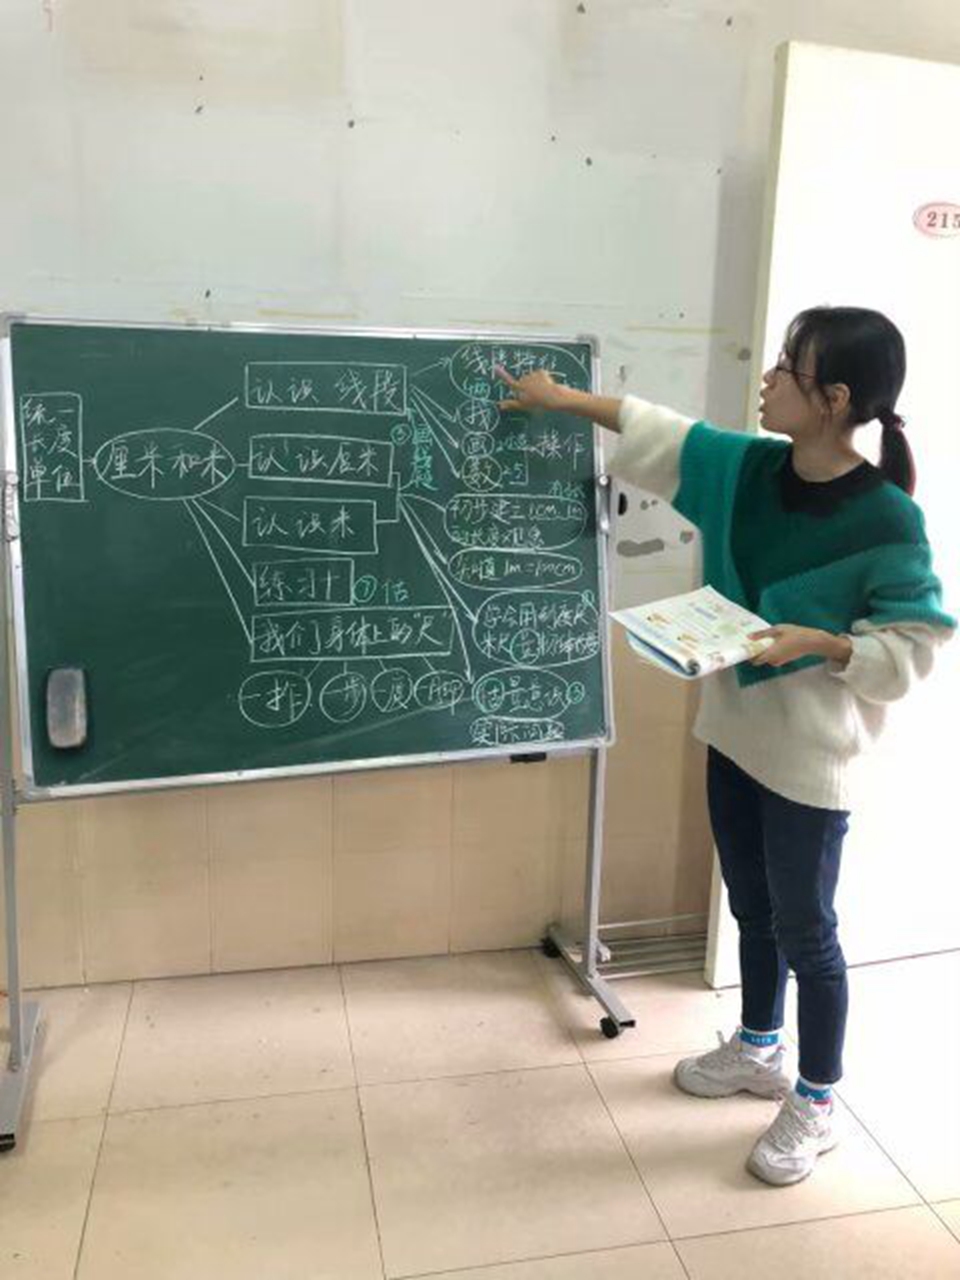 215
统一
长度
单位
厘米和米
认识 线段
认识厘米
认识米
练习十
⑦估
我们身体上的"尺"
一拃
一步
一庹
一脚
线段特征
找
画
操作
数
初步建立1cm 1m
知道 1m=100cm
学会用刻度尺
米尺
估量意识
实际问题